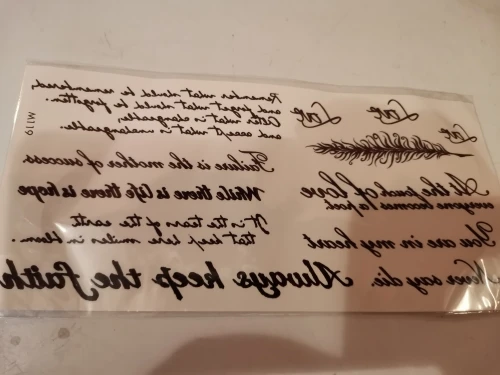 Remember what should be remembered,
and forget what should be forgotten.
Alter what is changeable,
and accept what is unchangeable.
Failure is the mother of success
While there is life there is hope
It is the tears of the earth
that keep here smiles in bloom.
Always keep the faith
Love
Love
Love
At the touch of love
everyone becomes a poet
You are in my heart
Never say die.